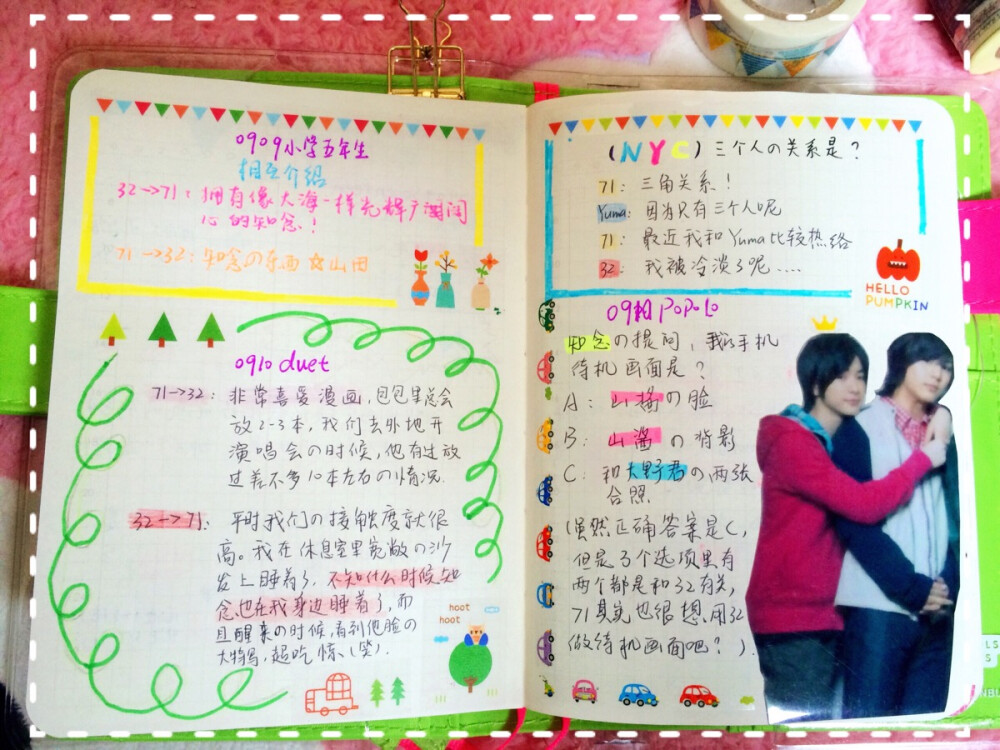 0909小学五年生
相互介绍
32→71：拥有像大海一样光辉广阔
心的知念！
71→32：知念の东西☆山田
0910 duet
71→32：非常喜爱漫画，包包里总会
放2-3本，我们去外地开
演唱会の时候，他有过放
过差不多10本左右の情况.
32→71：平时我们の接触度就很
高。我在休息室里宽敞の沙
发上睡着了，不知什么时候知
念也在我身边睡着了，而
且醒来の时候，看到他脸の
大特写，超吃惊（笑）.
hoot
hoot
(NYC) 三个人の关系是？
71：三角关系！
Yuma：因为只有三个人呢
71：最近我和Yuma比较热络
32：我被冷淡了呢....
HELLO
PUMPKIN
POPOLO
知念の提问，我の手机
待机画面是？
A：山搖の脸
B：山酱の背影
C：和大野君の两张
合照
（虽然正确答案是C，
但是3个选项里有
两个都是和32有关，
71其实也很想用32
做待机画面吧？）.